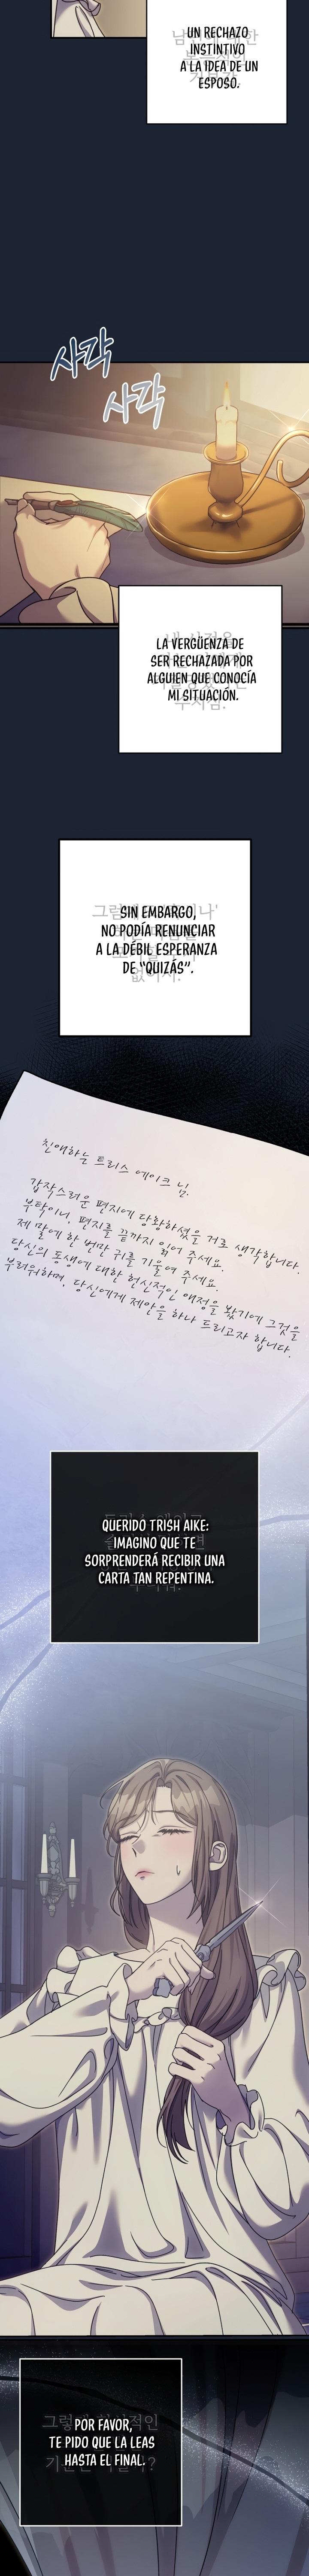 UN RECHAZO
INSTINTIVO
A LA IDEA DE UN
ESPOSO.
사각
사각
LA VERGÜENZA DE
SER RECHAZADA POR
ALGUIEN QUE CONOCÍA
MI SITUACIÓN.
SIN EMBARGO,
NO PODÍA RENUNCIAR
A LA DÉBIL ESPERANZA
DE “QUIZÁS”.
친애하는 트리스 에이크 님.
갑작스러운 편지에 당황하셨을 거로 생각합니다.
부탁이니, 편지를 끝까지 읽어 주세요.
제 말에 한 번만 귀를 기울여 주세요.
당신의 동생에 대한 헌신적인 애정을 봤기에 그것을
부러워하며, 당신에게 제안을 하나 드리고자 합니다.
QUERIDO TRISH AIKE:
IMAGINO QUE TE
SORPRENDERÁ RECIBIR UNA
CARTA TAN REPENTINA.
POR FAVOR,
TE PIDO QUE LA LEAS
HASTA EL FINAL.